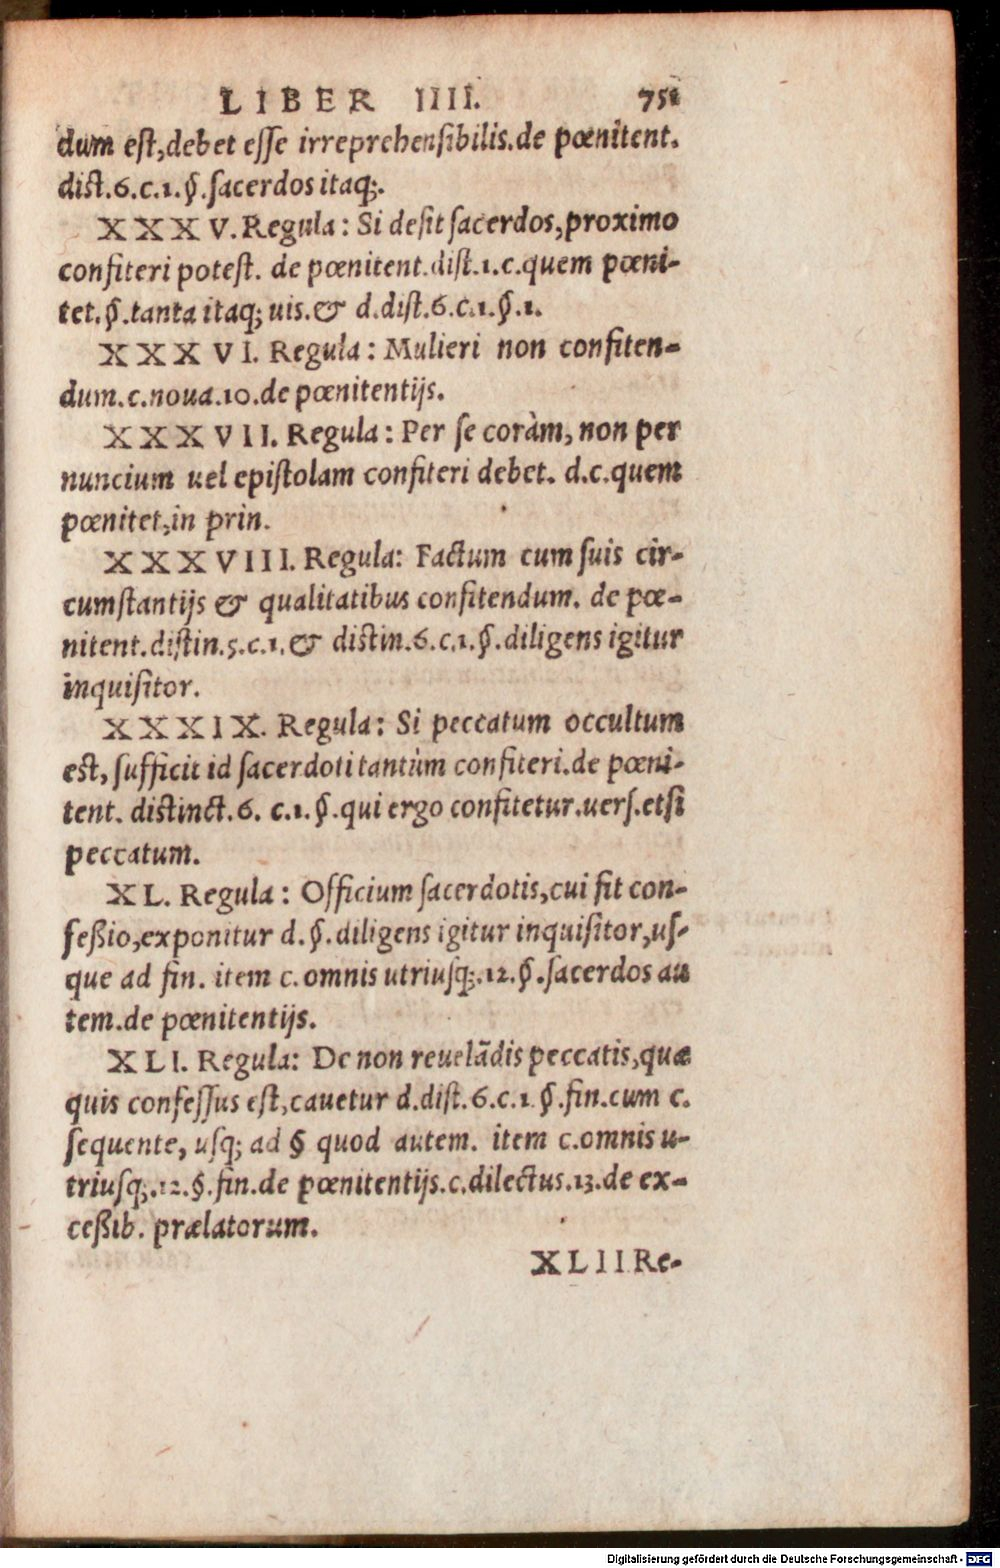 LIBER IIII. 751
dum eſt, debet eſſe irreprehenſibilis. de pœnitent.
diſt.6.c.1.§.ſacerdos itaq;.
XXXV. Regula: Si deſit ſacerdos, proximo
confiteri poteſt. de pœnitent. diſt.1.c.quem pœni-
tet.§.tanta itaq; uis. & d.diſt.6.c.1.§.1.
XXXVI. Regula: Mulieri non confiten-
dum.c.noua.10.de pœnitentijs.
XXXVII. Regula: Per ſe coràm, non per
nuncium uel epiſtolam confiteri debet. d.c.quem
pœnitet, in prin.
XXXVIII. Regula: Factum cum ſuis cir-
cumſtantijs & qualitatibus confitendum. de pœ-
nitent.diſtin.5.c.1.& diſtin.6.c.1.§.diligens igitur
inquiſitor.
XXXIX. Regula: Si peccatum occultum
eſt, ſufficit id ſacerdoti tantùm confiteri.de pœni-
tent. diſtinct.6. c.1.§.qui ergo confitetur.uerſ.etſi
peccatum.
XL. Regula: Officium ſacerdotis, cui fit con-
feßio, exponitur d.§.diligens igitur inquiſitor, uſ-
que ad fin. item c.omnis utriuſq;.12.§.ſacerdos au
tem.de pœnitentijs.
XLI. Regula: De non reuelãdis peccatis, quæ
quis confeſſus eſt, cauetur d.diſt.6.c.1 §.fin.cum c.
ſequente, uſq; ad § quod autem. item c.omnis u-
triuſq;.12.§.fin.de pœnitentijs.c.dilectus.13.de ex-
ceßib. prælatorum.
XLII Re-
Digitalisierung gefördert durch die Deutsche Forschungsgemeinschaft - DFG